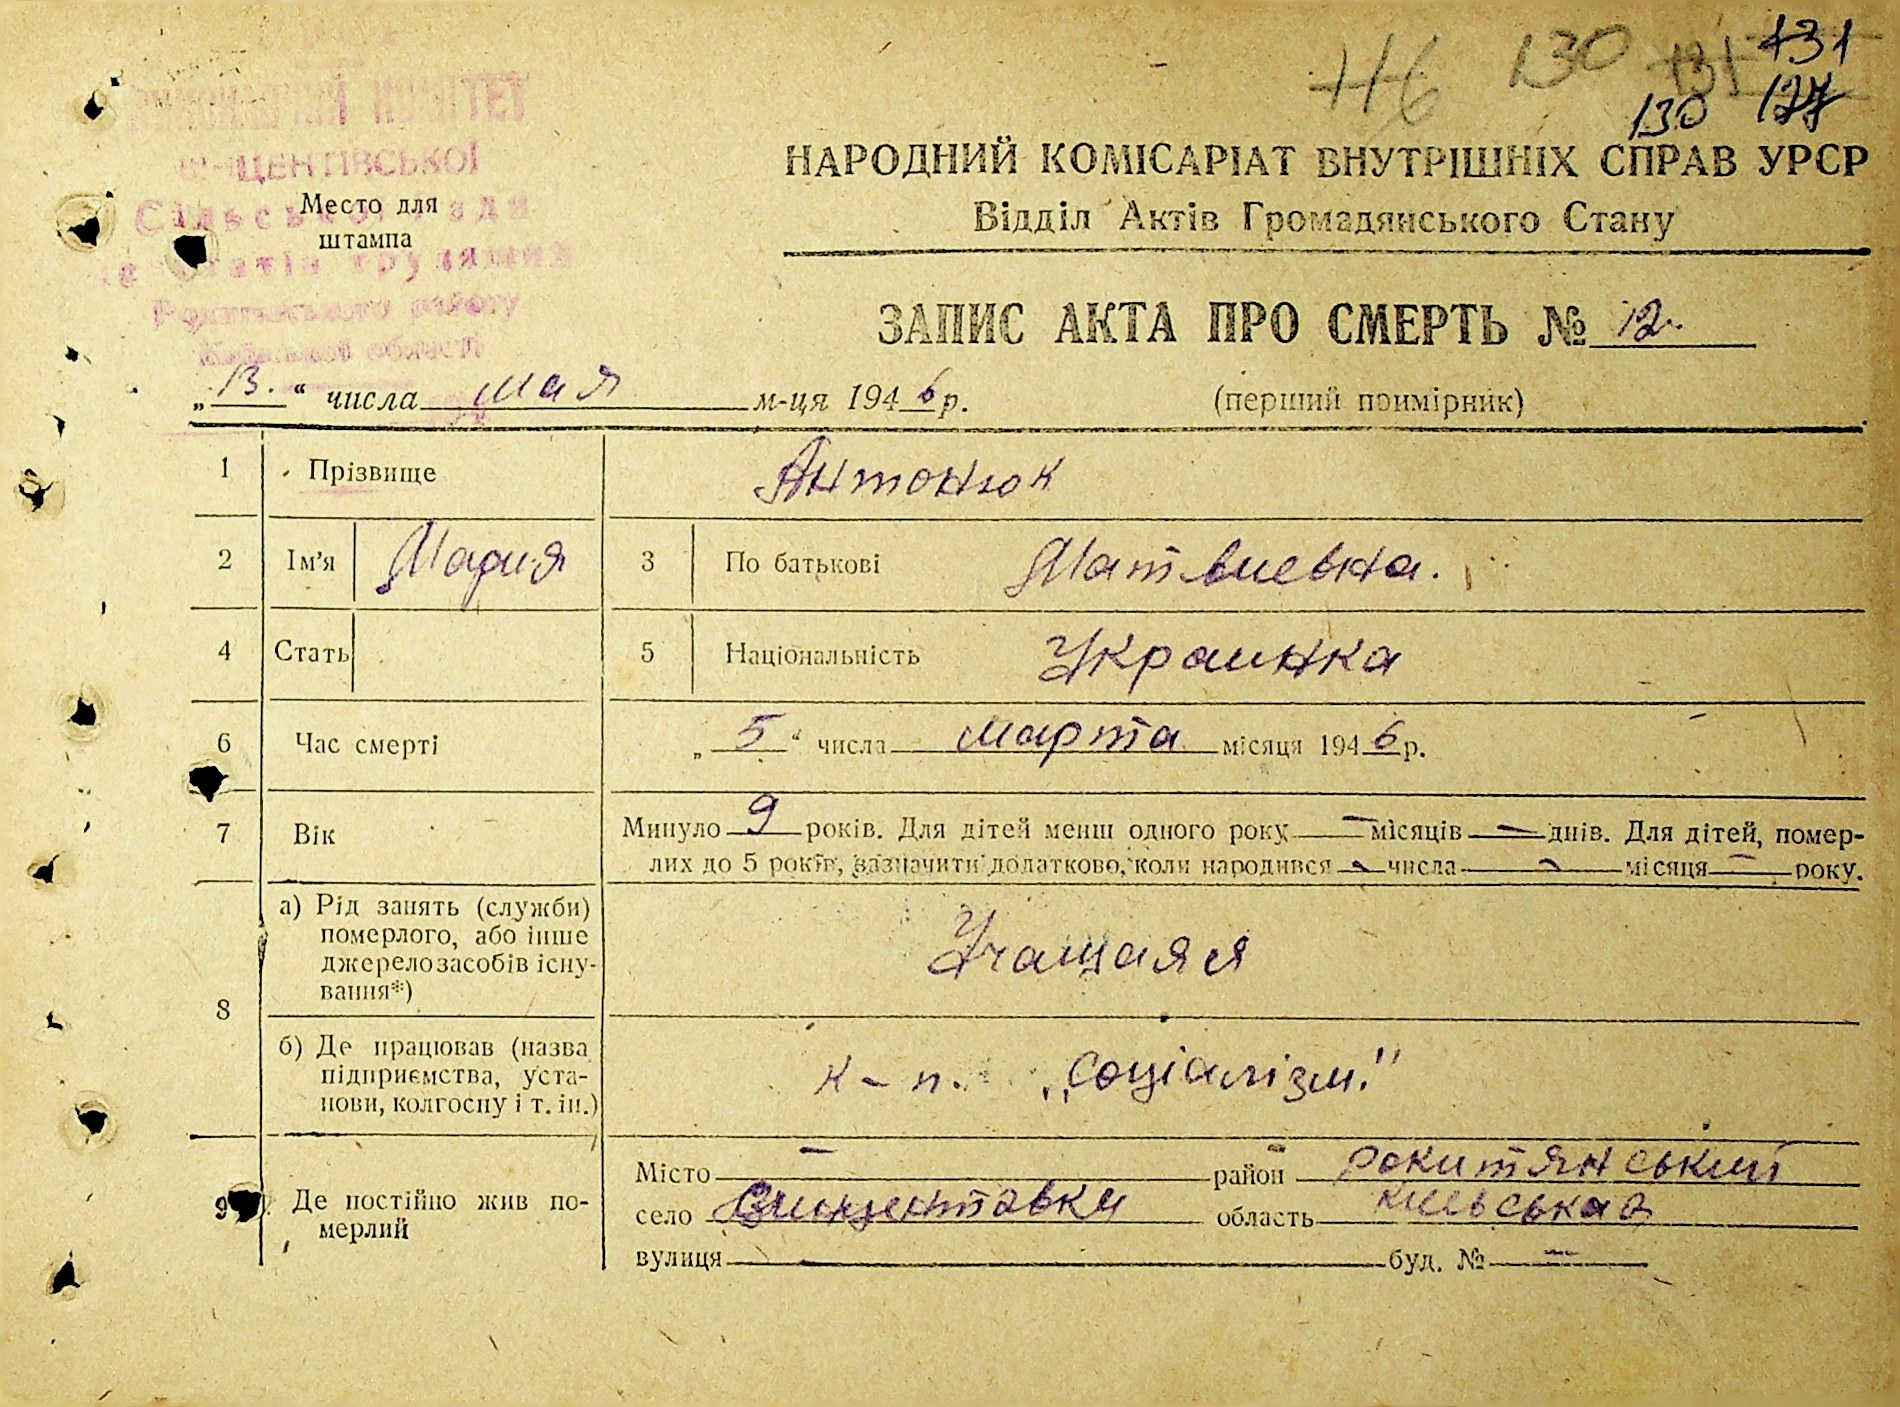 116 130 131 131
130 127
КОМІТЕТ
Сільської Ради
Рокитянського району
Київської області
Место для
штампа
НАРОДНИЙ КОМІСАРІАТ ВНУТРІШНІХ СПРАВ УРСР
Відділ Актів Громадянського Стану
ЗАПИС АКТА ПРО СМЕРТЬ № 12.
„ 13. “ числа мая м-ця 1946 р. (перший примірник)
1 Прізвище Антонюк
2 Ім'я Мария 3 По батькові Матвиевна.
4 Стать 5 Національність Украинка
6 Час смерті „ 5 “ числа марта місяця 1946 р.
7 Вік Минуло 9 років. Для дітей менш одного року — місяців — днів. Для дітей, помер-
лих до 5 років, зазначити додатково, коли народився - числа - місяця - року.
8 а) Рід занять (служби)
померлого, або інше
джерело засобів існу-
вання*) Учащаяся
б) Де працював (назва
підприємства, уста-
нови, колгоспу і т. ін.) к-п. „Соціалізм."
9 Де постійно жив по-
мерлий
Місто — район Рокитянський
село Винцентовки область Киевская
вулиця — буд. № —